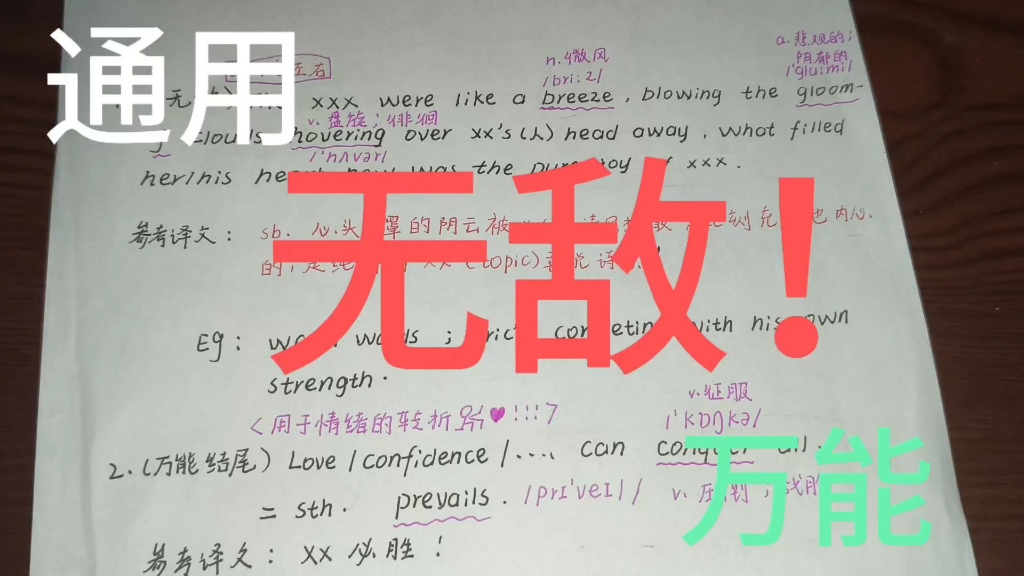 通用
无敌!
万能
左右
n.微风
/bri:z/
a.悲观的；
阴郁的
/ˈglu:mi/
xxx were like a breeze, blowing the gloom-
v.盘旋；徘徊
y clouds hovering over xx's(人) head away, what filled
/ˈhʌvər/
her/his now was the pure joy of xxx.
参考译文： sb. 心头 罩的阴云被
的，是 xx (topic)喜悦
Eg： words ; competing with his own
strength.
<用于情绪的转折 ♥!!!>
v.征服
/ˈkɒŋkə/
2.(万能结尾) Love/confidence/.... can conquer all.
= sth. prevails. /prɪˈveɪl/ v.
参考译文： xx 必胜！